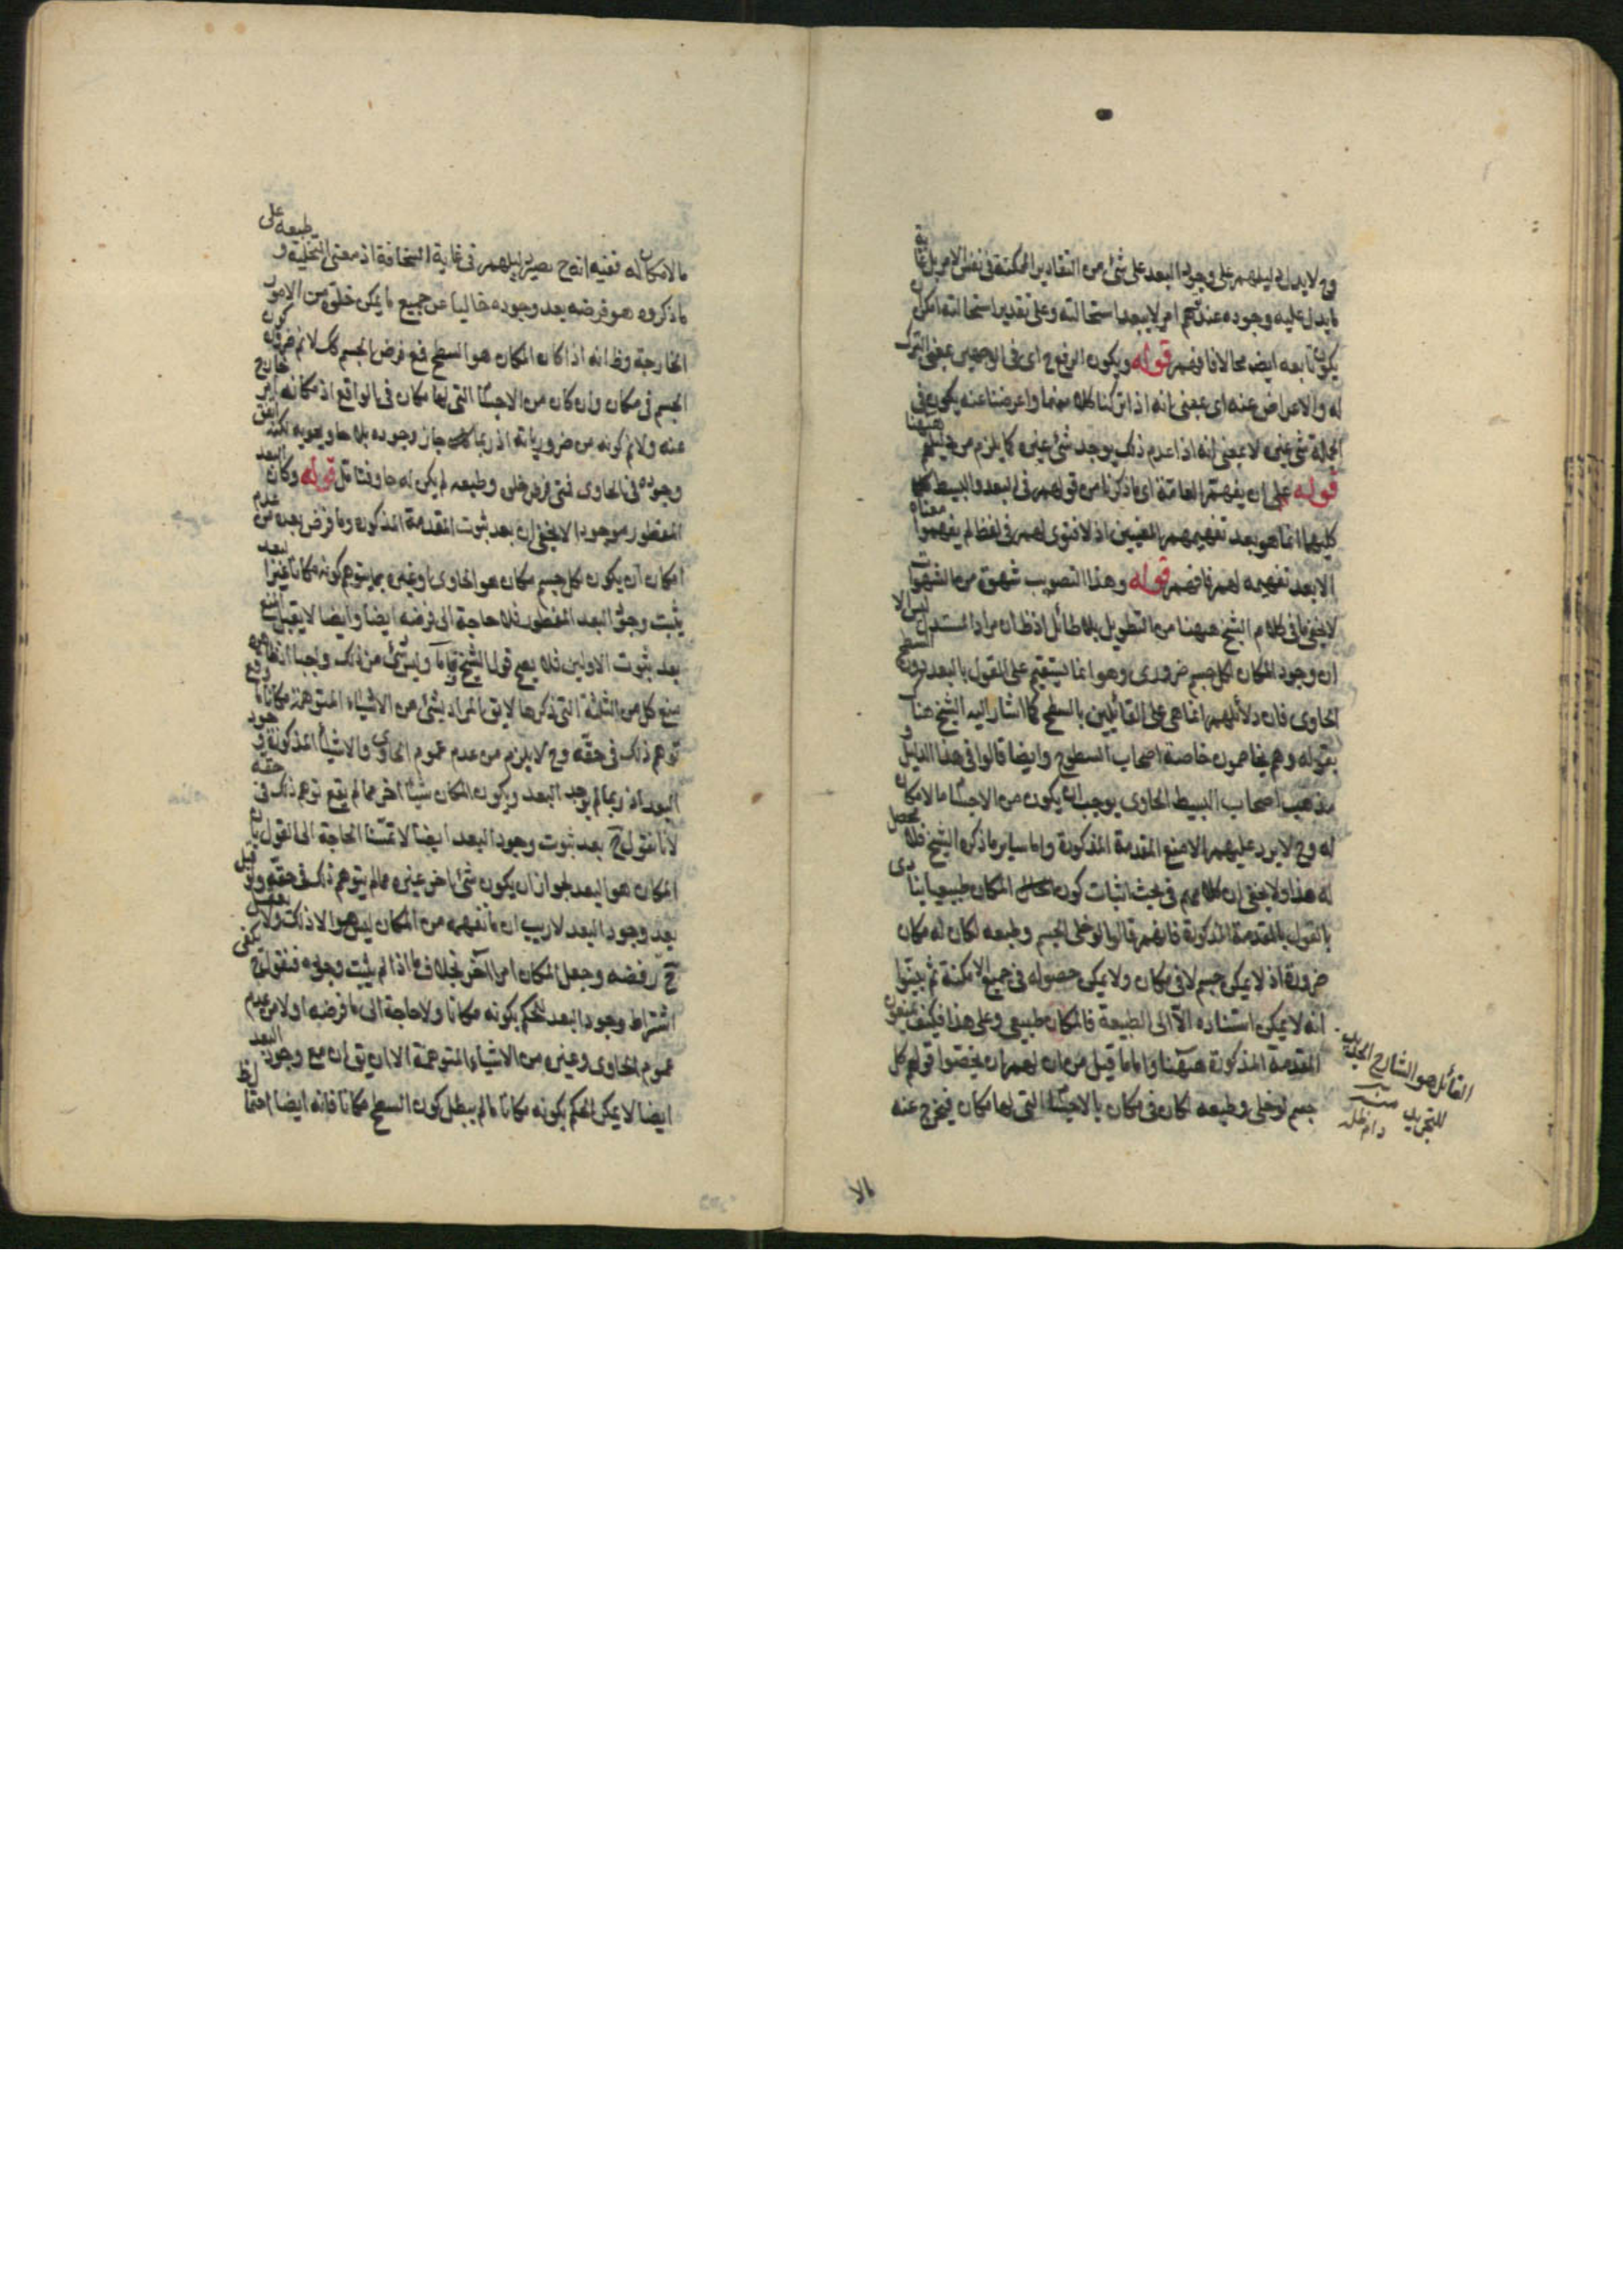 وح لا يدل دليلهم على وجود البعد على شئ من التقادير الممكنة فى نفس الامر بل غاية
ما يدل عليه وجوده عند امر لا يبعد استحالته وعلى تقدير استحالته امكن
يكون تابعه ايضا محالا فافهم قوله ويكون الرفع اى فى الوهم بمعنى الترك
له والاعراض عنه اى بمعنى انه اذا تركنا كلا منهما واعرضنا عنه يكون فى
شئ غيره لا بمعنى انه اذا عدم ذلك يوجد شئ غيره كما يلزم من دليلهم ههنا
قوله على ان يفهم العامة اى ما ذكرنا من قولهم فى البعد والبسيط
كليهما انما هو بعد تفهيمهم المعنيين اذ لا فتوى لهم فى لفظ لم يفهموا معناه
الا بعد تفهيمه لهم فافهم قوله وهذا التصويب شهوة من الشهوات
لا يخفى ما فى كلام الشيخ ههنا من التطويل بلا طائل اذ ظ ان مراد المستدل ليس الا
ان وجود المكان لكل جسم ضرورى وهو انما يستقيم على القول بالبعد دون السطح
الحاوى فان دلائلهم انما هى على القائلين بالسطح كما اشار اليه الشيخ هنا
بقوله وهم يخاصمون خاصة اصحاب السطوح وايضا قالوا فى هذا الدليل و
مذهب اصحاب البسيط الحاوى يوجب ان يكون من الاجسام ما لا مكان
له وح لا يرد عليهم الا منع المقدمة المذكورة واما ساير ما ذكره الشيخ فلا محصل
له هذا ولا يخفى ان كلامهم فى بحث اثبات كون المكان طبيعيا ينادى
بالقول بالمقدمة المذكورة فانهم قالوا لو خلى الجسم وطبعه لكان له مكان
ضرورة اذ لا يمكن جسم لا فى مكان ولا يمكن حصوله فى جميع الامكنة ثم بينوا
انه لا يمكن استناده الا الى الطبيعة فالمكان طبيعى وعلى هذا فكيف يمنعون
المقدمة المذكورة ههنا واما ما قيل من ان لهم ان يخصوا قولهم كل
جسم لو خلى وطبعه لكان فى مكان بالاجسام التى لها مكان فيخرج عنه
القائل هو الشارح الجديد
للتجريد منه
دام ظله
مالا
ما لا مكان له ففيه انه ح يصير دليلهم فى غاية السخافة اذ معنى التخلية و طبعه على
ما ذكروه هو فرضه بعد وجوده خاليا عن جميع ما يمكن خلوه من الامور
الخارجة وظ انه اذا كان المكان هو السطح فمع فرض الجسم كك لا نم ضرورة كون
الجسم فى مكان وان كان من الاجسام التى لها مكان فى الواقع اذ مكانه امر خارج
عنه ولا نم كونه من ضرورياته اذ ربما جاز وجوده بلا حاو يحويه لكنه اتفق
وجوده فى الحاوى فمتى فرض خلى وطبعه لم يكن له حاو فتامل قوله وكان البعد
المفطور موجودا لا يخفى ان بعد ثبوت المقدمة المذكورة وما فرض بعده من عدم
امكان ان يكون لكل جسم مكان هو الحاوى او غيره مما يتوهم كونه مكانا غير البعد
يثبت وجود البعد المفطور فلا حاجة الى فرضه ايضا وايضا لا يقبل المنع
بعد ثبوت الاولين فلا يصح قول الشيخ وليس شئ من ذلك واجبا
منع كل من الثلثة التى ذكرها لا يق المراد بشئ من الاشياء المتوهمة مكانا
توهم ذلك فى حقه وح لا يلزم من عدم عموم الحاوى والاشياء المذكورة وجود
البعد اذ ربما لم يوجد البعد ويكون المكان شيئا اخر مما لم يقع توهم ذلك فى حقه
لانا نقول ح بعد ثبوت وجود البعد ايضا لا تمسنا الحاجة الى القول بان
المكان هو البعد لجواز ان يكون شئ اخر غيره مما لم يتوهم ذلك فى حقه ولو قيل
بعد وجود البعد لا ريب ان ما نفهمه من المكان ليس هو الا ذلك ولا يعقل
ح رفضه وجعل المكان امرا آخر بخلاف ما اذا لم يثبت وجوده فنقول ح يكفى
اشتراط وجود البعد للحكم بكونه مكانا ولا حاجة الى ما فرضه اولا من عدم
عموم الحاوى وغيره من الاشياء المتوهمة الا ان يق ان مع وجود البعد
ايضا لا يمكن الحكم بكونه مكانا ما لم يبطل كون السطح مكانا فانه ايضا